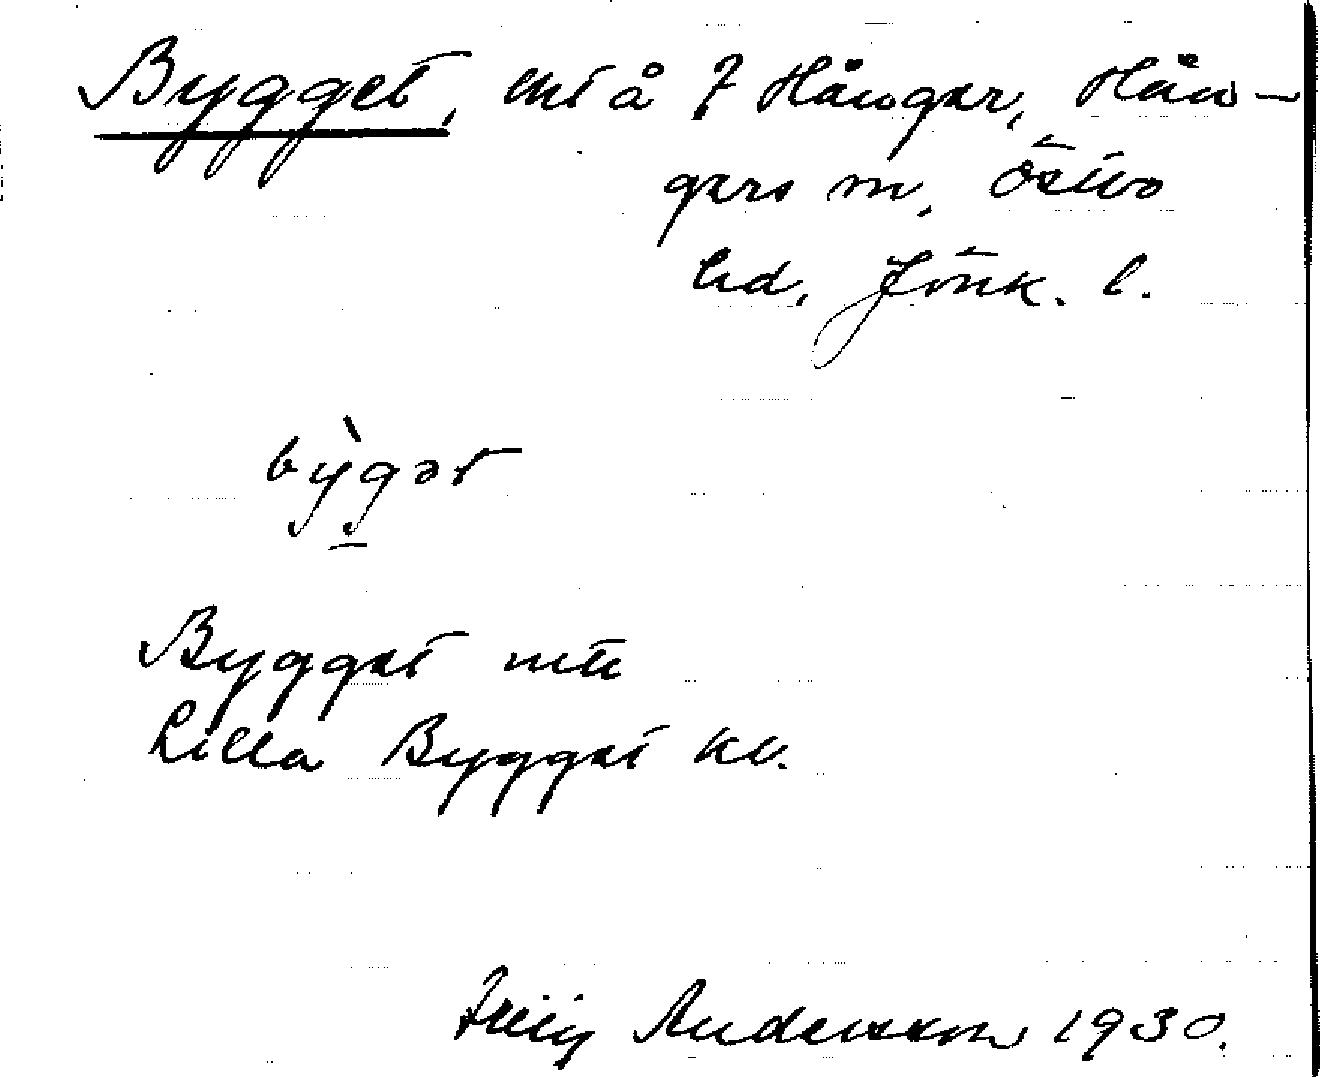 Bygget, ent å f Hånger, Hån-
gers sn, Östbo
hd, Jönk. l.
bỳgət
Bygget mtl
Lilla Bygget kv.
Andersson 1930.